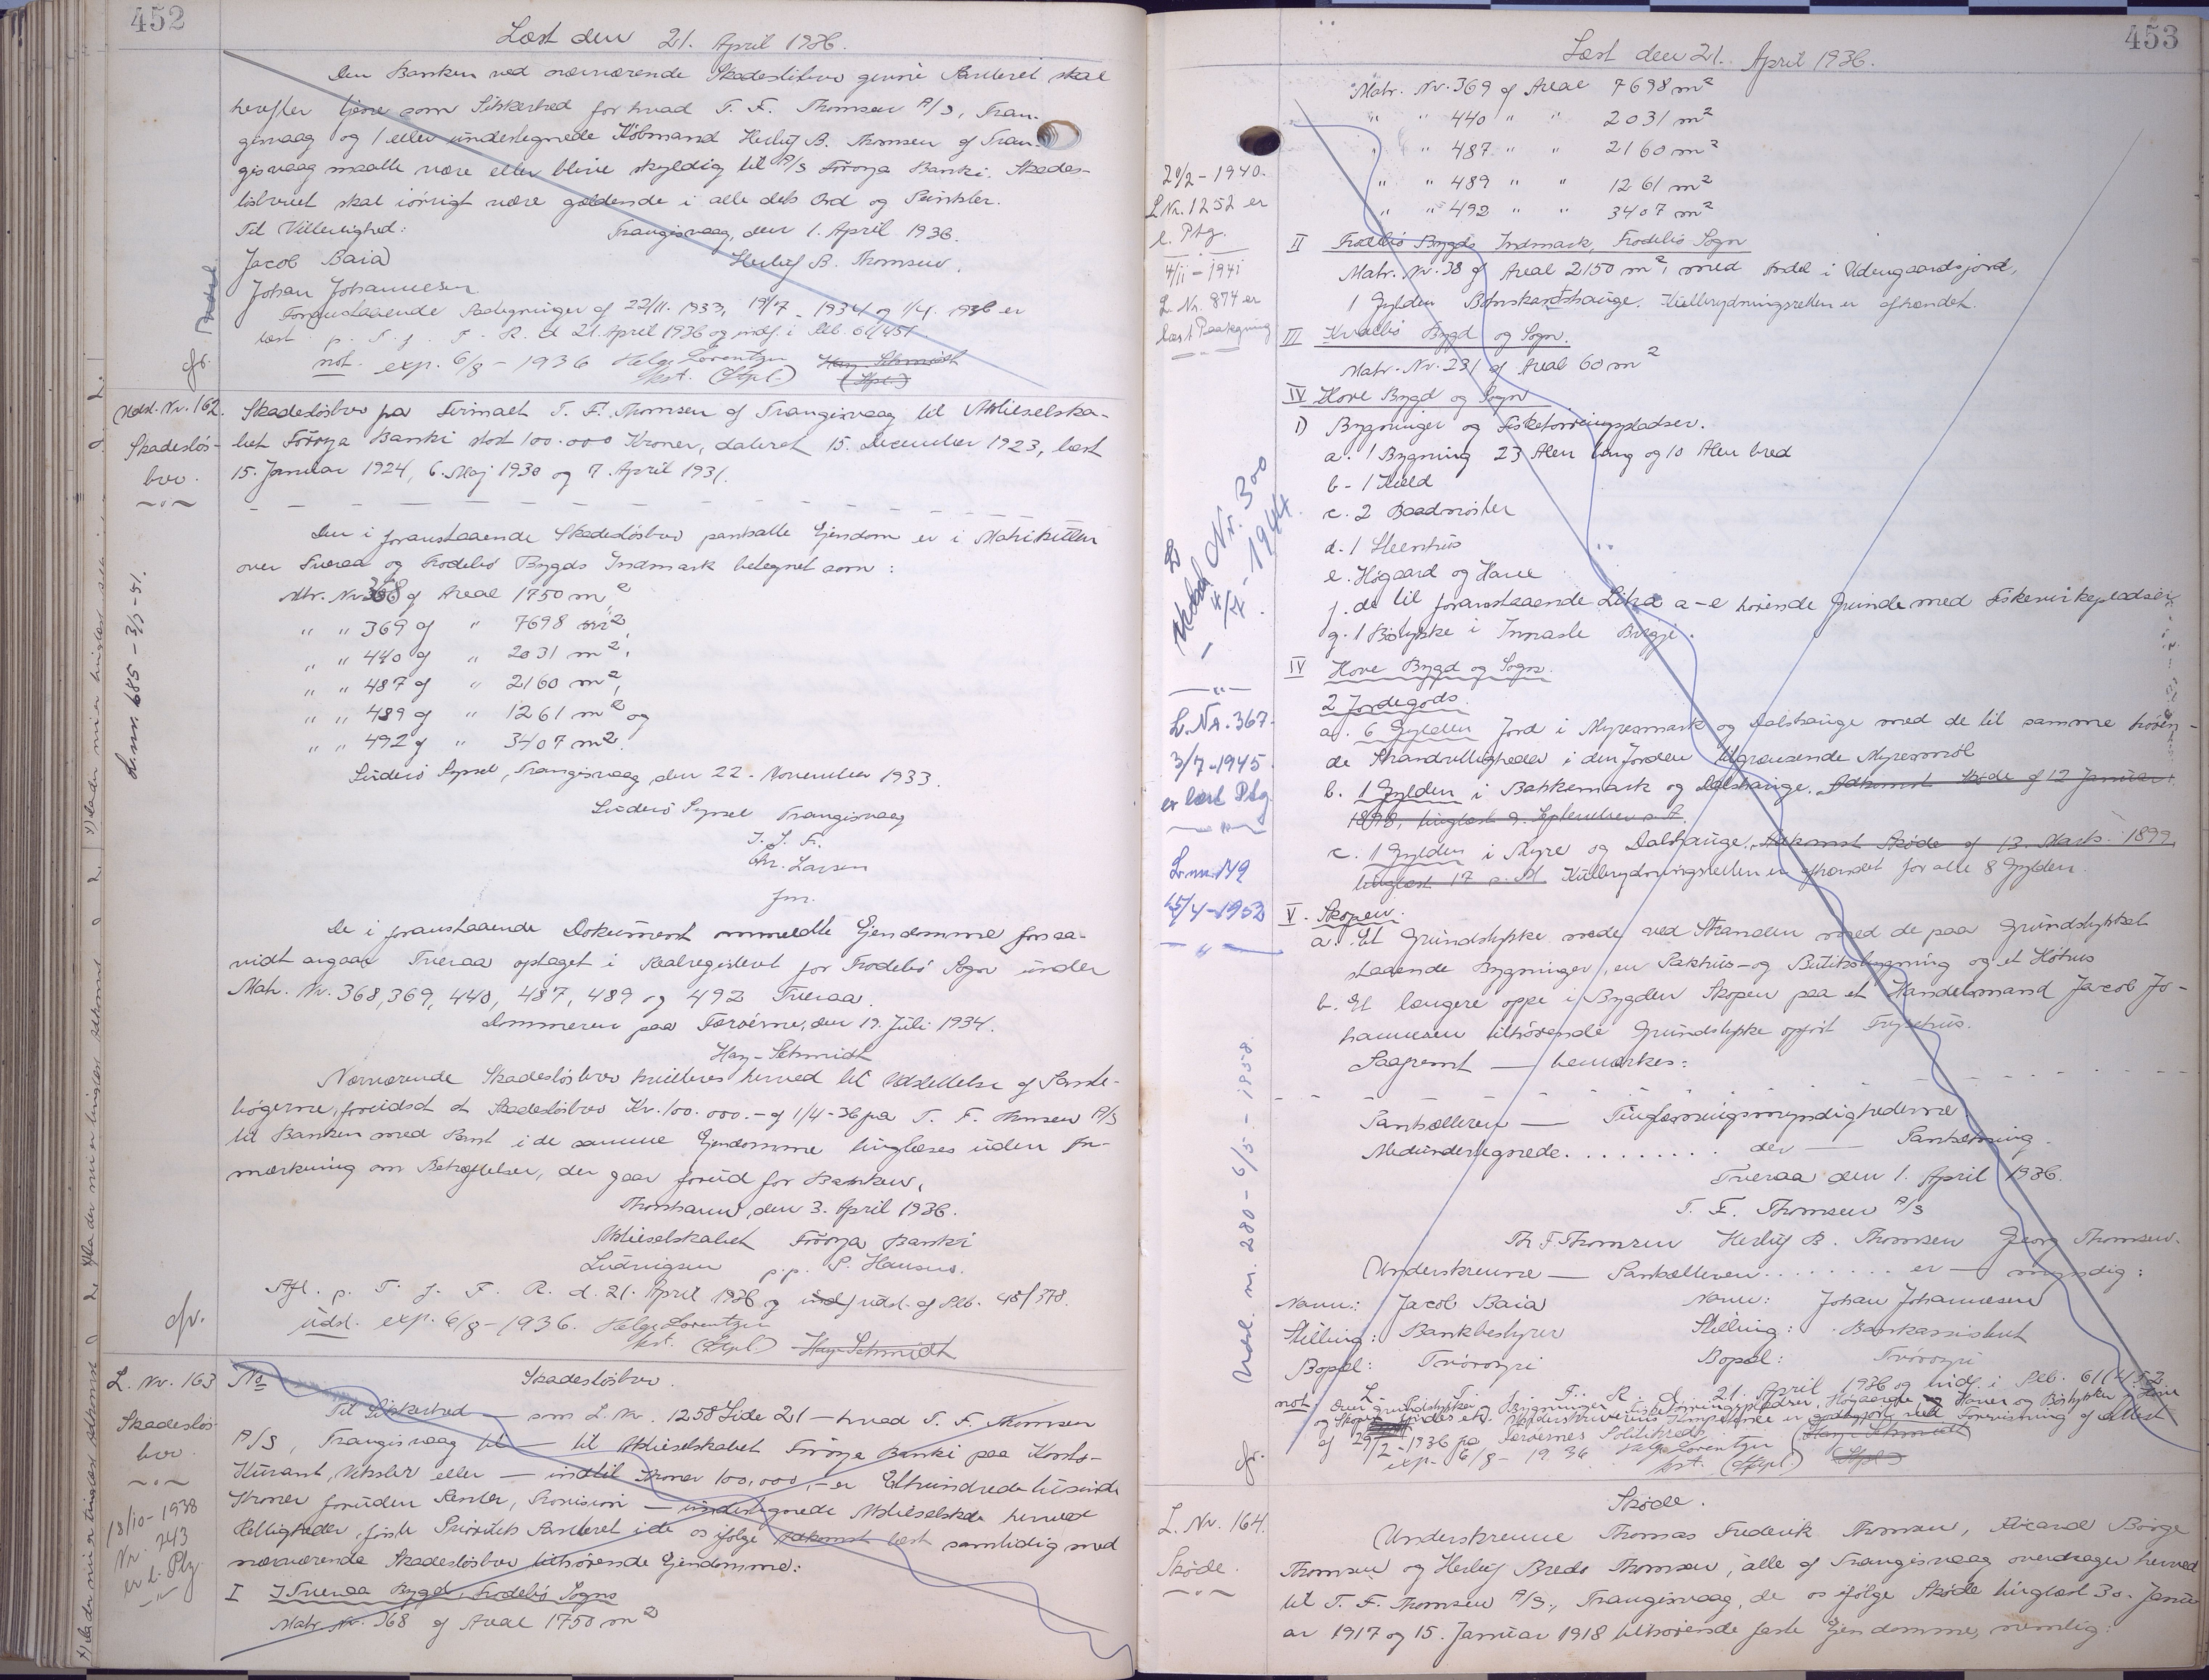 452
Læst den 21. April 1936.
Den Banken ved nærværende Skadesløsbrev givne Panteret skal
herefter tjene som Sikkerhed for hvad T. F. Thomsen A/S, Tran-
gisvaag og / eller undertegnede Købmand Herluf B. Thomsen af Tran-
gisvaag maatte være eller blive skyldig til A/S Føroya Banki. Skades-
løsbrevet skal iøvrigt være gældende i alle dets Ord og Punkter.
Til Vitterlighed: Trangisvaag, den 1. April 1936.
Jacob Baia Herluf B. Thomsen.
Johan Johannesen
Foranstaaende Paategninger af 22/11. 1933, 19/7 - 1934 og 1/4. 1936 er
læst p. T. f. F. R. d. 21. April 1936 og indf. i Plb. 61/451.
not. exp. 6/8 - 1936 Helge Lorentzen Hay-Schmidt
kst. (Stpl.) (Stpl.)
cfr.
Udsl. Nr. 162.
Skadesløs-
brev.
Skadesløsbrev fra Firmaet T. F. Thomsen af Trangisvaag til Aktieselska-
bet Føroya Banki stort 100.000 Kroner, dateret 15. December 1923, læst
15. Januar 1924, 6. Maj 1930 og 7. April 1931.
Den i foranstaaende Skadesløsbrev pantsatte Ejendom er i Matrikulen
over Tveraa og Frodebø Bygds Indmark betegnet som:
Mtr. Nr. 368 af Areal 1750 m²,
" " 369 af " 7698 m²,
" " 440 af " 2031 m²,
" " 487 af " 2160 m²,
" " 489 af " 1261 m² og
" " 492 af " 3407 m².
Suderø Syssel, Trangisvaag, den 22. November 1933.
Suderø Syssel Trangisvaag
Chr. Larsen
fm.
L.nr. 685 - 3/5 - 51.
De i foranstaaende Dokument ommeldte Ejendomme forsaa-
vidt angaar Tveraa optaget i Realregistret for Frodebø Sogn under
Matr. Nr. 368, 369, 440, 487, 489 og 492 Tveraa.
Dommeren paa Færøerne, den 19. Juli 1934.
Hay-Schmidt
Nærværende Skadesløsbrev kvitteres herved til Udslettelse af Pante-
bøgerne, forudsat at Skadesløsbrev Kr. 100.000.- af 1/4-36 fra T. F. Thomsen A/S
til Banken med Pant i de samme Ejendomme tinglæses uden An-
mærkning om Behæftelser, der gaar forud for Banken.
Thorshavn, den 3. April 1936.
Aktieselskabet Føroya Banki
Ludvigsen p.p. P. Hansen.
Afl. p. T. f. F. R. d. 21. April 1936 og indf. udsl. af Plb. 48/378.
udsl. exp. 6/8 - 1936. Helge Lorentzen
kst. (Stpl.) Hay-Schmidt
cfr.
L. Nr. 163
Skadesløs-
brev
18/10 - 1938
Nr. 743
er l. Ptg.
No Skadesløsbrev.
Til Sikkerhed — som L. Nr. 1258 Side 21 — hvad T. F. Thomsen
A/S, Trangisvaag til — til Aktieselskabet Føroya Banki paa Konto-
Kurant, Veksler eller — indtil Kroner 100,000,- er Ethundredetusinde
Kroner foruden Renter, Provision — undertegnede Aktieselskab herved
Rettigheder, første Prioritets Panteret i de os ifølge Adkomst læst samtidig med
nærværende Skadesløsbrev tilhørende Ejendomme:
I I Tveraa Bygd, Frodebø Sogn
Matr. Nr. 368 af Areal 1750 m²
453
Læst den 21. April 1936.
Matr. Nr. 369 af Areal 7698 m²
" " 440 " " 2031 m²
" " 487 " " 2160 m²
" " 489 " " 1261 m²
" " 492 " " 3407 m²
II Frodebø Bygds Indmark, Frodebø Sogn
Matr. Nr. 38 af Areal 2150 m², med Andel i Udengaardsjord,
1 Gylden Bønskardshauge. Kulbrydningsretten er afhændet.
III Kvalbø Bygd og Sogn.
Matr. Nr. 231 af Areal 60 m²
IV Hove Bygd og Sogn
1) Bygninger og Fisketørringspladser.
a. 1 Bygning 23 Alen lang og 10 Alen bred
b. 1 Kjeld
c. 2 Baadnøster
d. 1 Steenhus
e. Høgaard og Have
f. de til foranstaaende Litra a-e hørende Grunde med Fiskevirkepladser
g. 1 Bøstykke i Innaste Bryggi.
IV Hove Bygd og Sogn.
2 Jordegods.
a. 6 Gylden Jord i Myremark og Dalshauge med de til samme høren-
de Strandrettigheder i den Jorden tilgrænsende Myremøl
b. 1 Gylden i Bakkemark og Dalshauge. Adkomst Skøde af 12 Januar
1898, tinglæst 9. September s. A.
c. 1 Gylden i Myre og Dalshauge. Adkomst Skøde af 13. Marts 1899,
tinglæst 17 s. M. Kulbrydningsretten er afhændet for alle 8 Gylden.
V. Skopen.
a. Et Grundstykke nede ved Stranden med de paa Grundstykket
staaende Bygninger, en Pakhus- og Butiksbygning og et Høhus
b. Et længere oppe i Bygden Skopen paa et Handelsmand Jacob Jo-
hannesen tilhørende Grundstykke opført Frysehus.
Saafremt — bemærkes:
Panthaveren — Tinglæsningsmyndighederne.
Medundertegnede . . . . . . . . der — Pantsætning.
Tveraa den 1. April 1936.
T. F. Thomsen A/S
Th F. Thomsen Herluf B. Thomsen Georg Thomsen.
Underskrevne — Panthaveren . . . . . . . er — myndig:
Navn: Jacob Baia Navn: Johan Johannesen
Stilling: Bankbestyrer Stilling: Bankassistent
Bopæl: Tvøroyri Bopæl: Tvøroyri
L. T. F. R. d. 21. April 1936 og indf. i Plb. 61/452.
not. Over Grundstykker, Bygninger, Fisketørringspladser, Høgaarde og Haver og Bøstykker i Hove
og Skopen findes ej. Underskrivernes Kompetence er godtgjort ved Forevisning af Attest
af 29/2 - 1936 fra Færøernes Politikreds (Hay-Schmidt)
exp. 6/8 - 1936 Helge Lorentzen
kst. (Stpl.) (Stpl.)
cfr.
29/2 - 1940.
L Nr. 1252 er
l. Ptg.
4/11 - 1941
L. Nr. 874 er
læst Paategning
Nr. 300
1944.
L. Nr. 367.
3/7 - 1945
er læst Ptg.
L. nr. 149
15/4 - 1952
Udsl. nr. 280 - 6/5 - 1958
L. Nr. 164.
Skøde.
Skøde.
Underskrevne Thomas Frederik Thomsen, Ricard Börge
Thomsen og Herluf Bredo Thomsen, alle af Trangisvaag overdrager herved
til T. F. Thomsen A/S., Trangisvaag, de os ifølge Skøde tinglæst 30. Janu-
ar 1917 og 15. Januar 1918 tilhørende faste Ejendomme, nemlig: